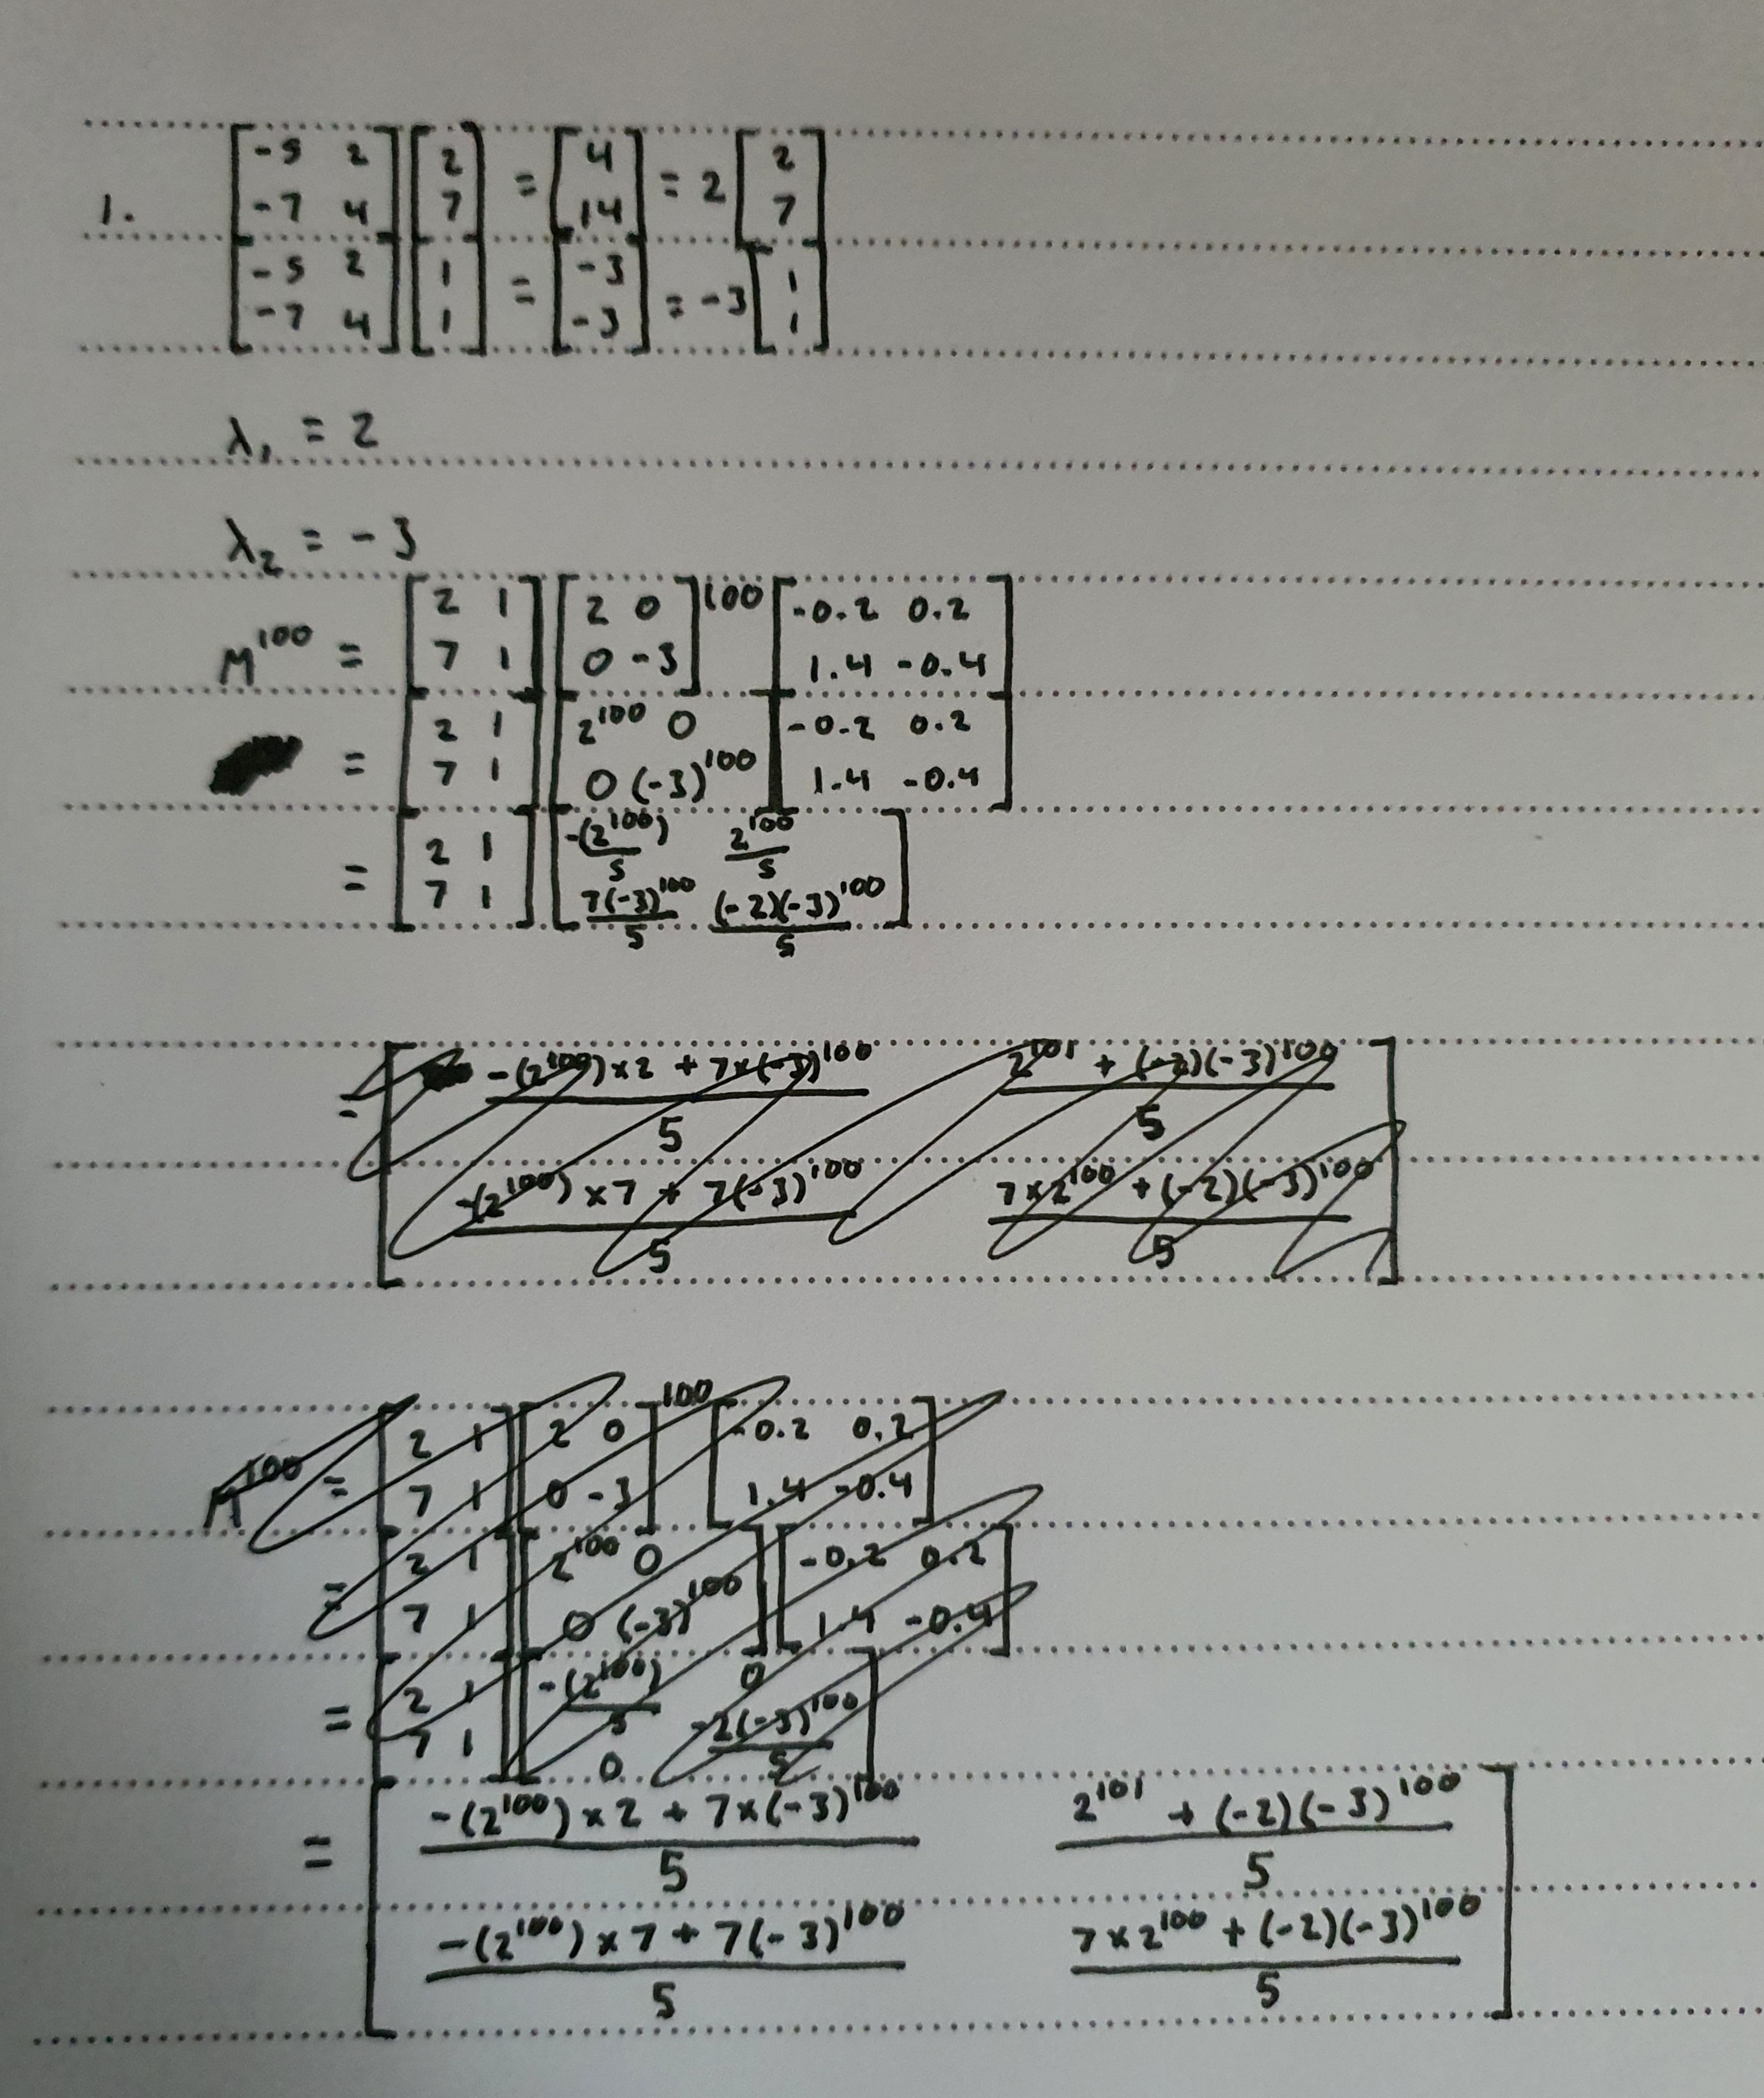 1. [-5 2; -7 4] [2; 7] = [4; 14] = 2 [2; 7]
[-5 2; -7 4] [1; 1] = [-3; -3] = -3 [1; 1]
λ₁ = 2
λ₂ = -3
M¹⁰⁰ = [2 1; 7 1] [2 0; 0 -3]¹⁰⁰ [-0.2 0.2; 1.4 -0.4]
= [2 1; 7 1] [2¹⁰⁰ 0; 0 (-3)¹⁰⁰] [-0.2 0.2; 1.4 -0.4]
= [2 1; 7 1] [-(2¹⁰⁰)/5 2¹⁰⁰/5; 7(-3)¹⁰⁰/5 (-2)(-3)¹⁰⁰/5]
= [(-(2¹⁰⁰)×2 + 7×(-3)¹⁰⁰)/5 (2¹⁰¹ + (-2)(-3)¹⁰⁰)/5; (-(2¹⁰⁰)×7 + 7(-3)¹⁰⁰)/5 (7×2¹⁰⁰ + (-2)(-3)¹⁰⁰)/5]
M¹⁰⁰ = [2 1; 7 1] [2 0; 0 -3]¹⁰⁰ [-0.2 0.2; 1.4 -0.4]
= [2 1; 7 1] [2¹⁰⁰ 0; 0 (-3)¹⁰⁰] [-0.2 0.2; 1.4 -0.4]
= [2 1; 7 1] [-(2¹⁰⁰)/5 0; 0 -2(-3)¹⁰⁰/5]
= [(-(2¹⁰⁰)×2 + 7×(-3)¹⁰⁰)/5 (2¹⁰¹ + (-2)(-3)¹⁰⁰)/5; (-(2¹⁰⁰)×7 + 7(-3)¹⁰⁰)/5 (7×2¹⁰⁰ + (-2)(-3)¹⁰⁰)/5]